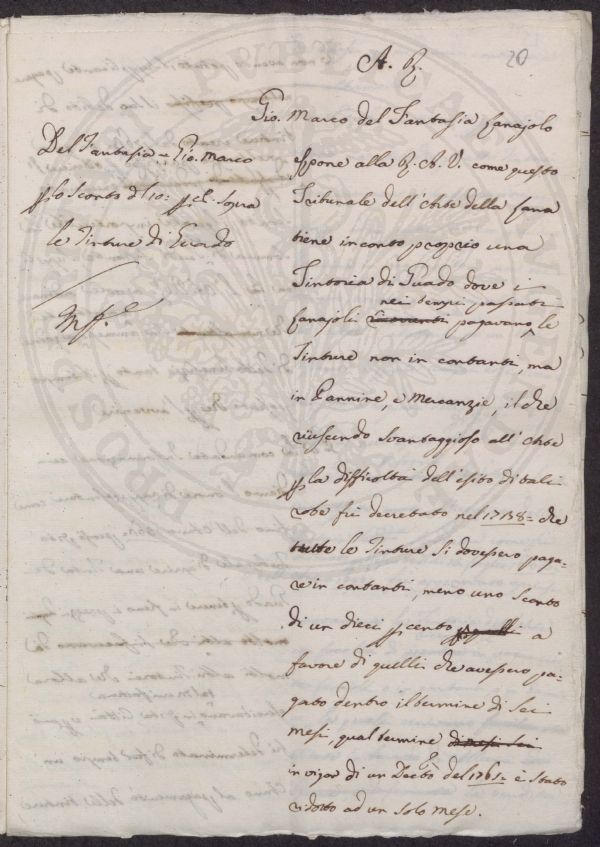 20
A. R.
Del Fantasia = Gio. Marco
p lo Sconto d l 10: p C.to sopra
le Tinture di Guado
Gio. Marco del Fantasia Lanajolo
espone alla R. A. V. come questo
Tribunale dell'Arte della Lana
tiene in conto proprio una
Tintoria di Guado dove i
nei tempi passati
Lanajoli pagavano le
Tinture non in contanti, ma
in Pannine, e Mercanzie, il che
riuscendo svantaggioso all'Arte
p la difficoltà dell'esito di tali
robe fù decretato nel 1738= che
tutte le Tinture si dovessero paga=
re in contanti, meno uno Sconto
di un dieci p cento a
favore di quelli che avessero pa=
gato dentro il termine di Sei
mesi, qual termine di mesi sei
in vigor di un Dec.to del 1761= è stato
ridotto ad un solo mese.